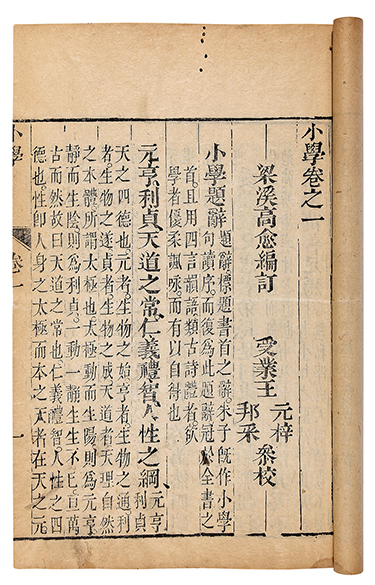 小學卷之一
梁溪高愈編訂 受業王 元梓 邦采 叅校
小學題辭 題辭標題書首之辭朱子旣作小學
句讀序而復為此題辭冠於全書之
首且用四言韻語類古詩體者欲
學者優柔諷咏而有以自得也
元亨利貞天道之常仁義禮智人性之綱 元亨利貞
天之四德也元者生物之始亨者生物之通利
者生物之遂貞者生物之成天道者天理自然
之本體所謂太極也太極動而生陽則為元亨
靜而生陰則為利貞一動一靜生生不已亘萬
古而然故曰天道之常也仁義禮智人性之四
德也性即人身之太極而本之天者在天之元
小學 卷一 一